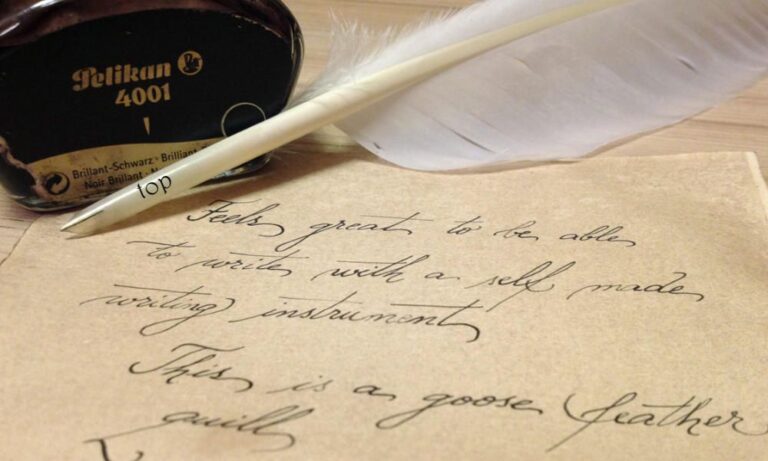 Pelikan
4001
Brillant-Schwarz · Brilliant
Noir Brillant · N
top
Feels great to be able
to write with a self made
writing instrument
This is a goose (feather
quill